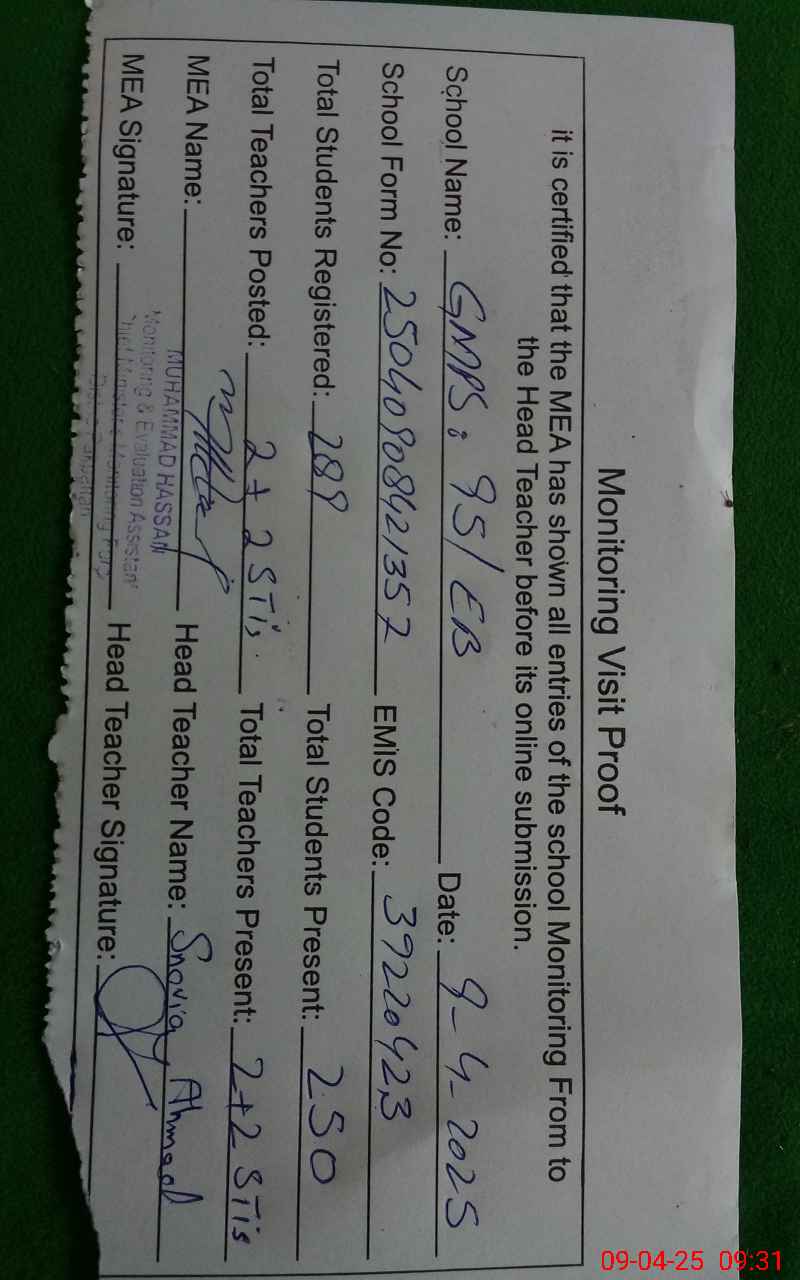 Monitoring Visit Proof
it is certified that the MEA has shown all entries of the school Monitoring From to
the Head Teacher before its online submission.
School Name: GMPS: 95/EB Date: 9-4-2025
School Form No: 25040908421357 EMIS Code: 39220423
Total Students Registered: 289 Total Students Present: 250
Total Teachers Posted: 2+2 STi's Total Teachers Present: 2+2 STi's
MEA Name: Head Teacher Name: Ahmad
MUHAMMAD HASSAN
Monitoring & Evaluation Assistant
Chief Minister's Monitoring Force
MEA Signature: Head Teacher Signature:
09-04-25 09:31